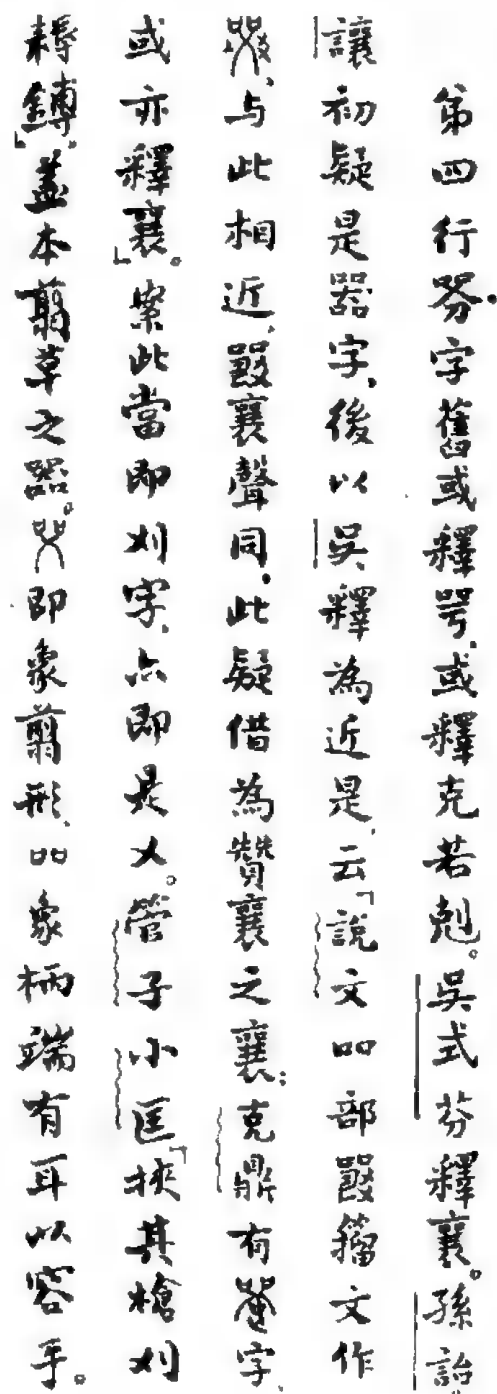 第四行字舊或釋咢，或釋克若剋。吳式芬釋襄。孫詒
讓初疑是器字，後以吳釋為近是，云「說文吅部㗊籀文作
，与此相近，襄聲同，此疑借為贊襄之襄；克鼎有字，
或亦釋襄」。案此當即刈字，亦即是乂。管子小匡「挾其槍刈
耨鎛」，蓋本翦草之器。即象翦形，吅象柄端有耳以容手。